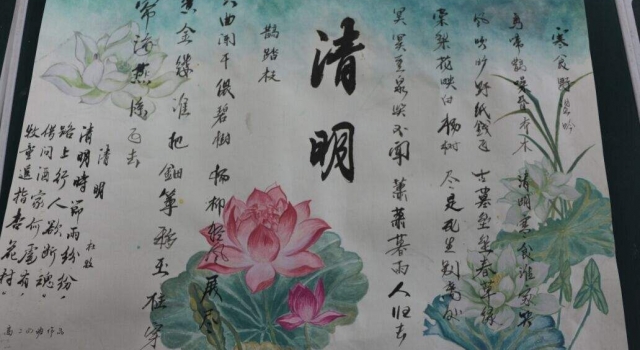 寒食野望吟
乌啼鹊噪昏乔木 清明寒食谁家哭
风吹旷野纸钱飞 古墓垒垒春草绿
棠梨花映白杨树 尽是死生别离处
冥冥重泉哭不闻 萧萧暮雨人归去
清明
鹊踏枝
六曲阑干偎碧树 杨柳风 展
黄金缕 谁把钿筝移玉柱 穿
海燕 去
清明 杜牧
清明时节雨纷纷,
路上行人欲断魂。
借问酒家何处有,
牧童遥指杏花村。
高二 作品